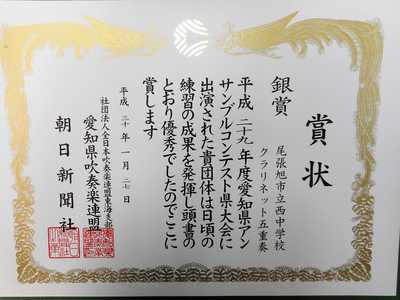 賞状
銀賞
尾張旭市立西中学校
クラリネット五重奏
平成二十九年度愛知県アン
サンブルコンテスト県大会に
出演された貴団体は日頃の
練習の成果を発揮し頭書の
とおり優秀でしたのでここに
賞します
平成三十年一月二七日
社団法人全日本吹奏楽連盟東海支部
愛知県吹奏楽連盟
朝日新聞社